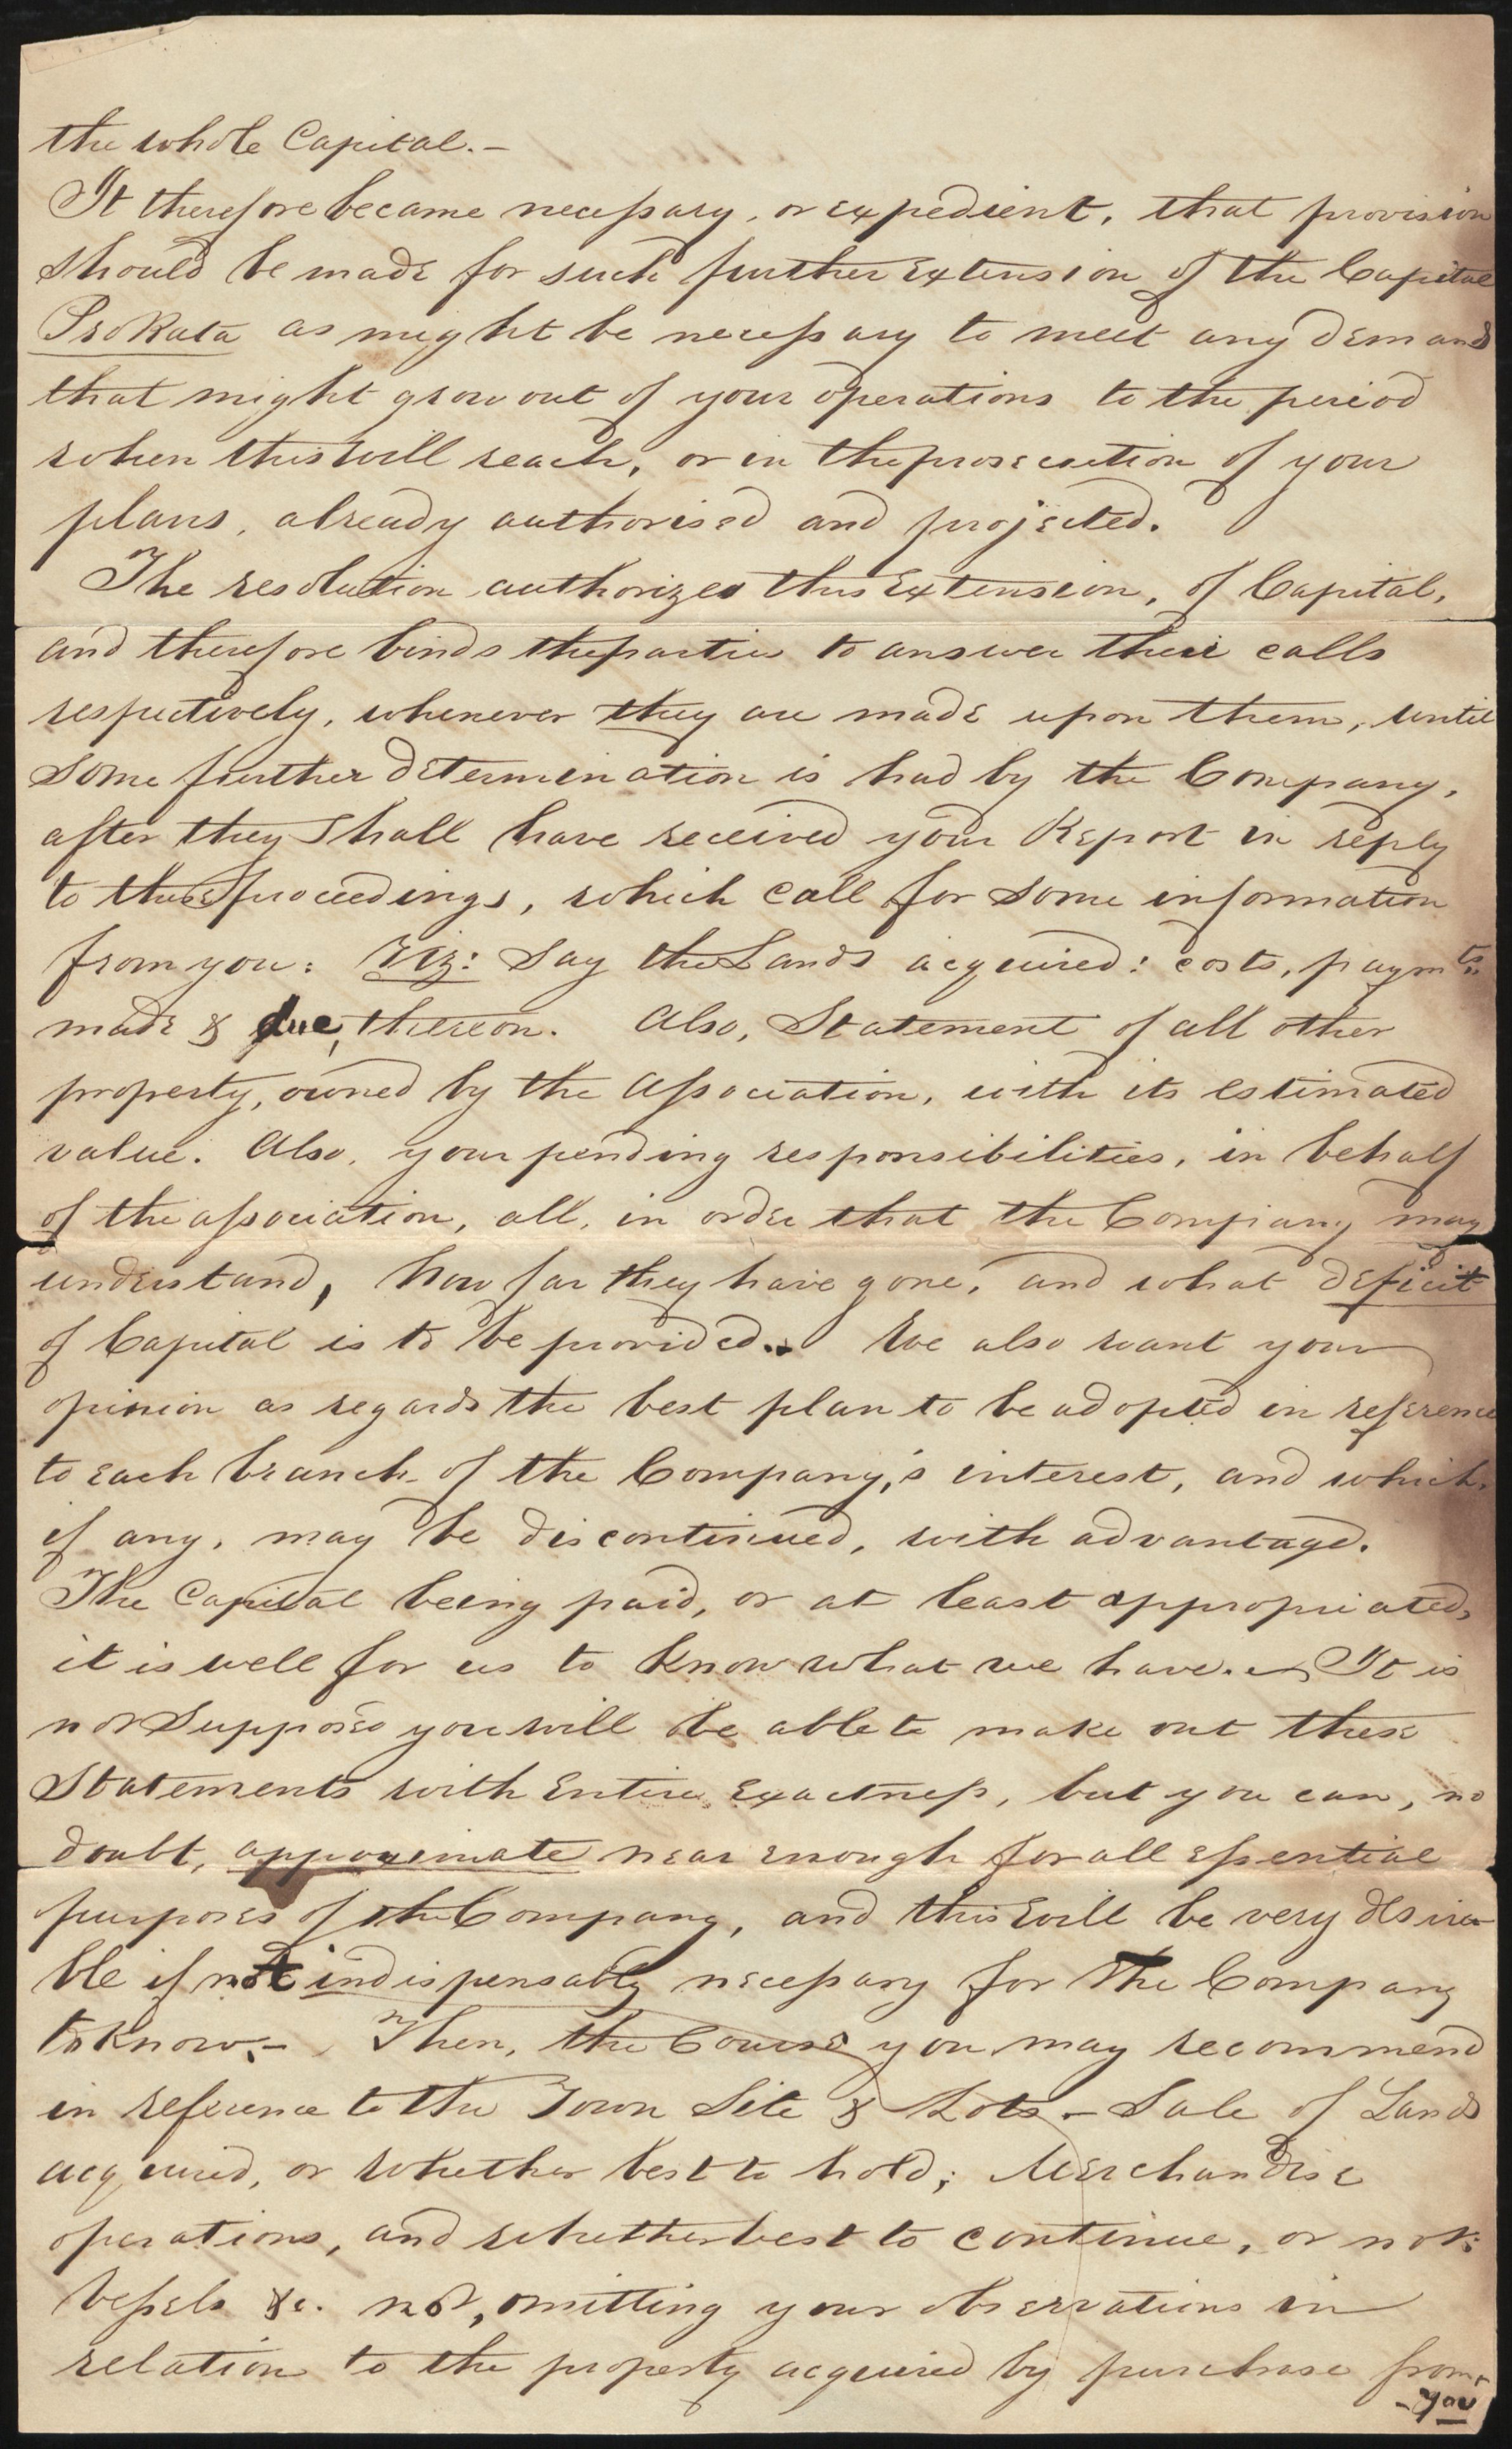 the whole Capital.-
It therefore became necessary, or expedient, that provision
should be made for such further extension of the Capital
ProRata as might be necessary to meet any demand
that might grow out of your operations to the period
when this will reach, or in the prosecution of your
plans, already authorised and projected.
The resolution authorizes this Extension, of Capital,
and therefore binds the parties to answer their calls
respectively, whenever they are made upon them, until
some further determination is had by the Company,
after they shall have received your Report in reply
to these proceedings, which call for some information
from you: Viz: Say the Lands acquired: costs, paymts.
made & due, thereon. Also, Statement of all other
property, owned by the Association, with its estimated
value. Also, your pending responsibilities, in behalf
of the association, all, in order that the Company may
understand, how far they have gone, and what deficit
of Capital is to be provided. We also want your
opinion as regards the best plan to be adopted in reference
to each branch of the Company,s interest, and which,
if any, may be discontinued, with advantage.
The Capital being paid, or at least appropriated,
it is well for us to know what we have. It is
not supposed you will be able to make out these
Statements with Entire Exactness, but you can, no
doubt, approximate near enough for all essential
purposes of the Company, and this will be very desira-
ble if not indispensably necessary for the Company
to know.- Then, the Course you may recommend
in reference to the Town Site & Lots.- Sale of Lands
acquired, or whether best to hold; Merchandise
operations, and whether best to continue, or not:
Vessels &c. not, omitting your observations in
relation to the property acquired by purchase from
-you